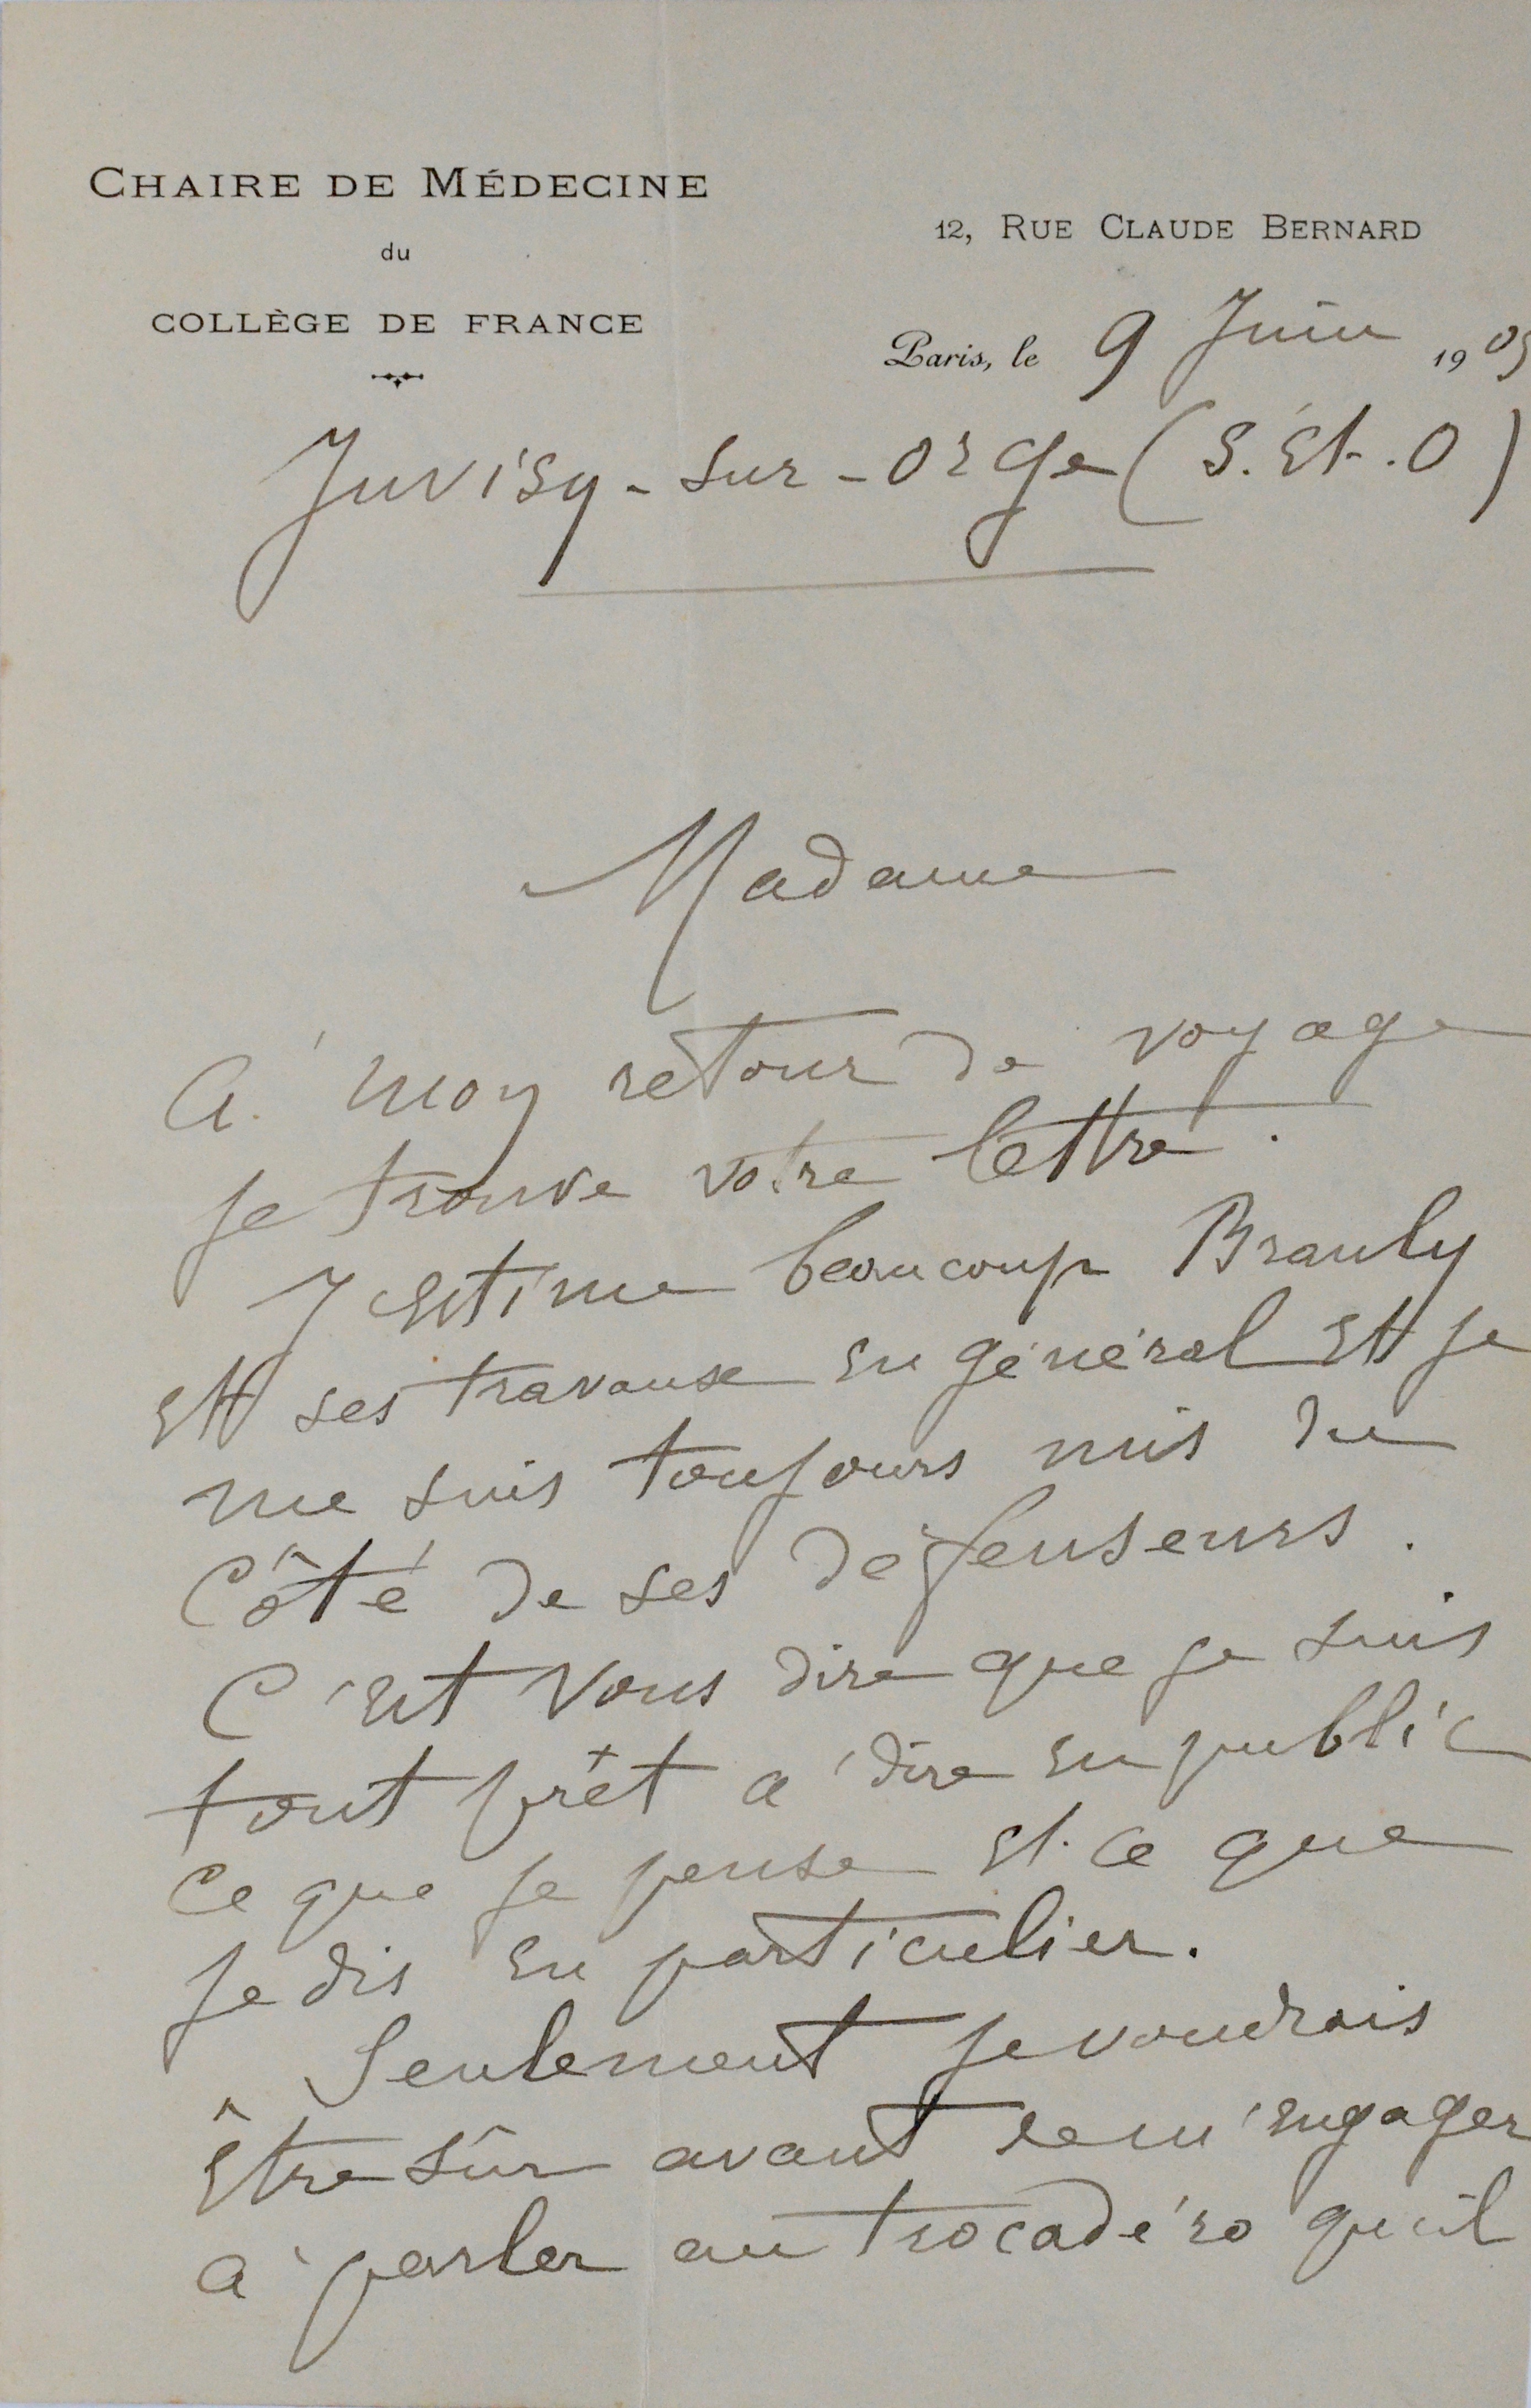 CHAIRE DE MÉDECINE
du
COLLÈGE DE FRANCE
12, RUE CLAUDE BERNARD
Paris, le 9 Juin 1905
Juvisy-sur-Orge (S. Et. O)
Madame
À mon retour de voyage
je trouve votre lettre.
J'estime beaucoup Branly
et ses travaux en général et je
me suis toujours mis du
côté de ses défenseurs.
C'est vous dire que je suis
tout prêt à dire en public
ce que je pense et ce que
je dis en particulier.
Seulement je voudrais
être sûr avant de m'engager
à parler au trocadéro qu'il